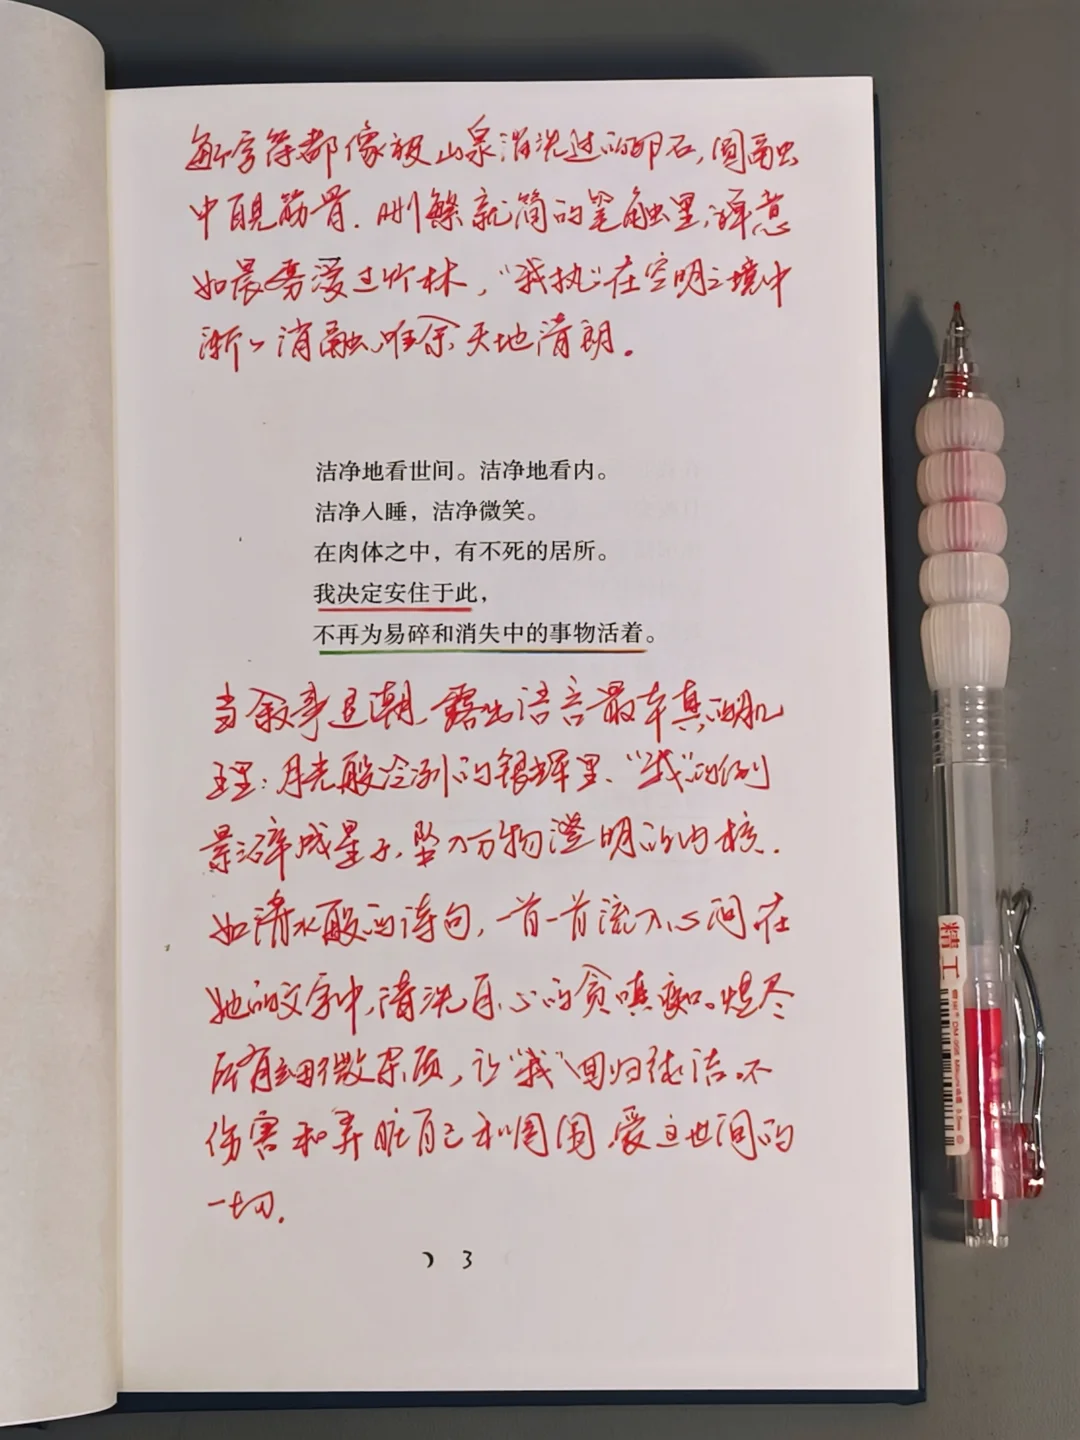 每个字符都像被山泉清洗过的卵石,圆融
中自见筋骨.删繁就简的笔触里,禅意
如晨雾漫过竹林,“我执”在空明之境中
渐渐消融,唯余天地清朗.
洁净地看世间。洁净地看内。
洁净入睡，洁净微笑。
在肉体之中，有不死的居所。
我决定安住于此，
不再为易碎和消失中的事物活着。
当叙事退潮,露出语言最本真的肌
理:月光般冷冽的银辉里、“我”的倒
影碎成星子,坠入万物澄明的内核.
如清水般的诗句,一首一首流入心间在
她的文字中,清洗自心的贪嗔痴。燃尽
所有细微杂质,让“我”回归纯洁.不
伤害和弄脏自己和周围.爱这世间的
一切.
3
精工